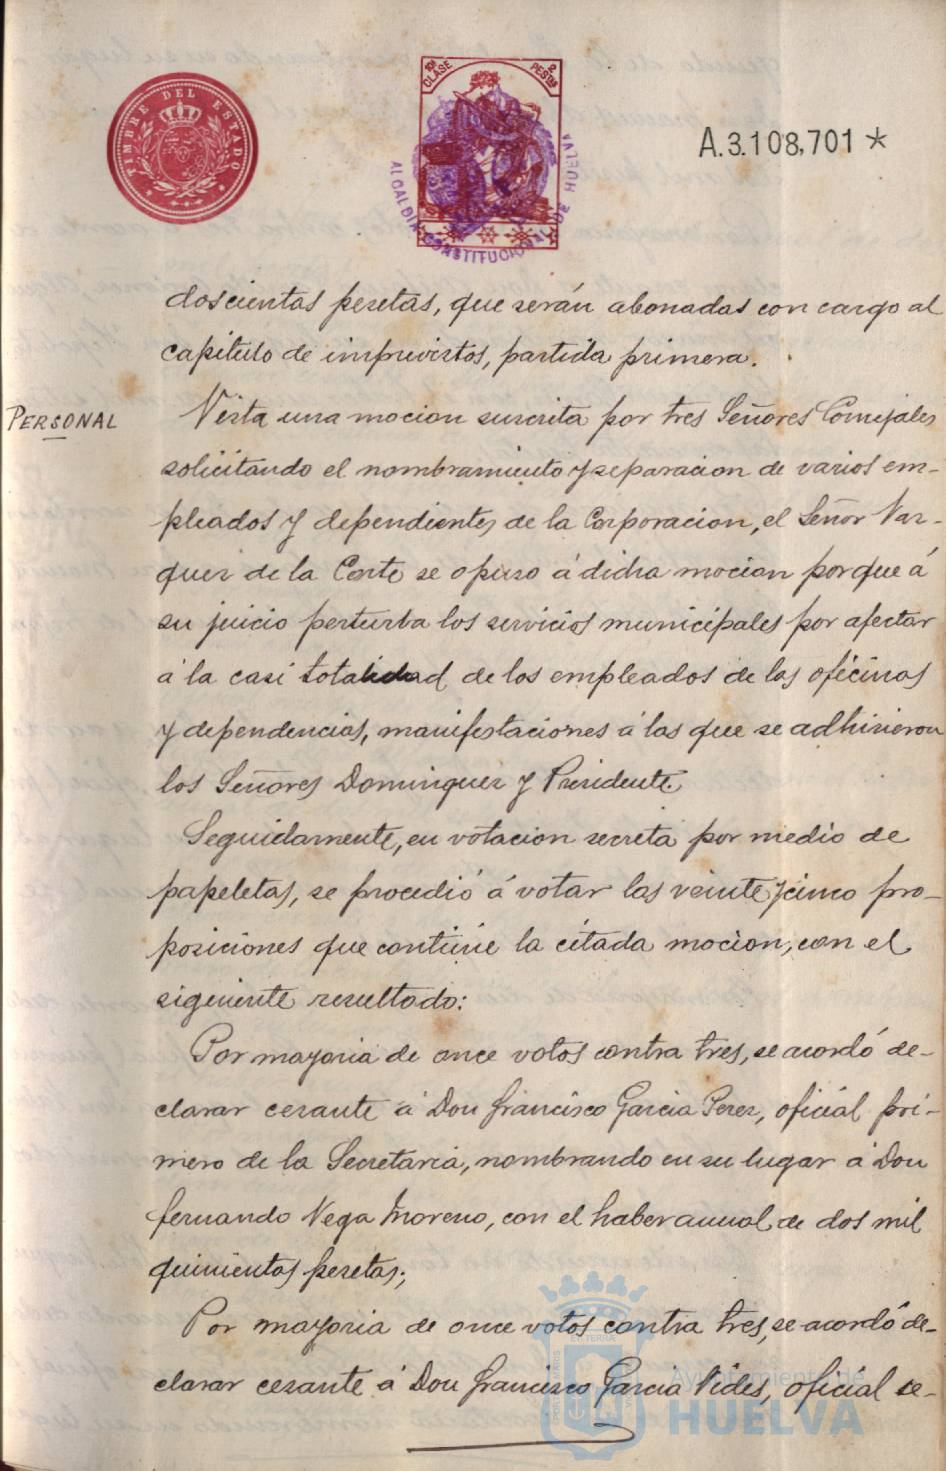 TIMBRE DEL ESTADO
10ª CLASE 2 PESETAS
ALCALDIA CONSTITUCIONAL DE HUELVA
A.3.108,701*
doscientas pesetas, que serán abonadas con cargo al
capitulo de imprevistos, partida primera.
PERSONAL
Vista una mocion suscrita por tres Señores Concejales
solicitando el nombramiento y separacion de varios em-
pleados y dependientes de la Corporacion, el Señor Vaz-
quez de la Corte se opuso á dicha mocion porque á
su juicio perturba los servicios municipales por afectar
á la casi totalidad de los empleados de las oficinas
y dependencias, manifestaciones á las que se adhirieron
los Señores Dominguez y Presidente.
Seguidamente, en votacion secreta por medio de
papeletas, se procedió á votar las veinte y cinco pro-
posiciones que contiene la citada mocion, con el
siguiente resultado:
Por mayoria de once votos contra tres, se acordó de-
clarar cesante á Don Francisco Garcia Perez, oficial pri-
mero de la Secretaria, nombrando en su lugar á Don
Fernando Vega Moreno, con el haber anual de dos mil
quinientas pesetas;
Por mayoria de once votos contra tres, se acordó de-
clarar cesante á Don Francisco Garcia Vides, oficial se-
Ayuntamiento de
HUELVA